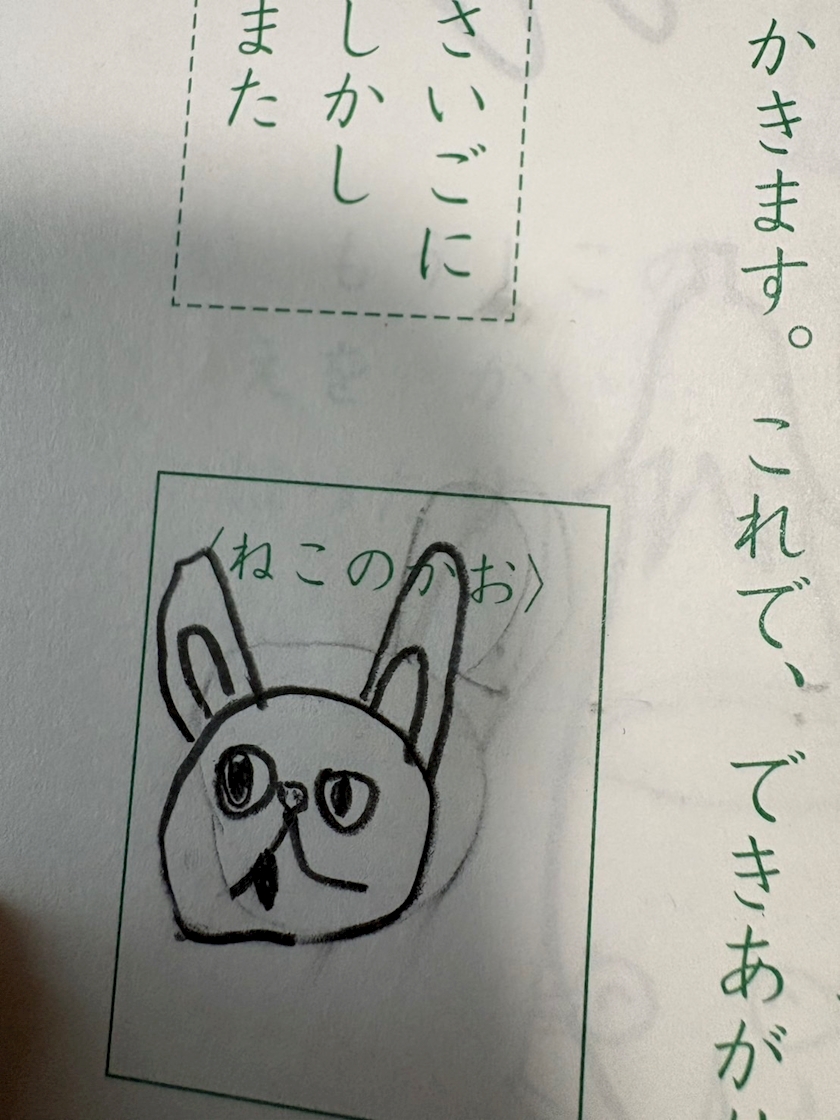 かきます。これで、できあが
さいごに
しかし
また
〈ねこのかお〉